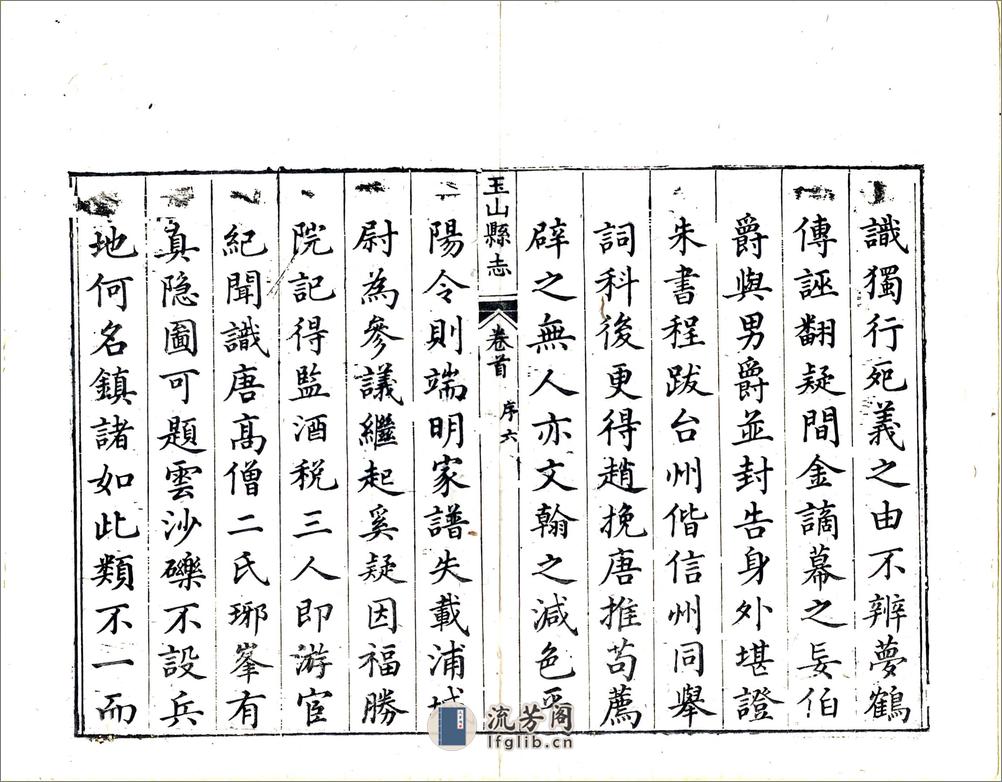 識獨行死義之由不辨夢鶴
傳誣翻疑間金謫幕之妄伯
爵與男爵並封告身外堪證
朱書程跋台州偕信州同舉
詞科後更得趙挽唐推茍薦
辟之無人亦文翰之減色
玉山縣志
卷首
序六
陽令則端明家譜失載浦城
尉為參議繼起奚疑因福勝
院記得監酒稅三人即游宦
紀聞識唐高僧二氏琊峯有
真隐圖可題雲沙礫不設兵
地何名鎮諸如此類不一而
流芳阁
lfglib.cn